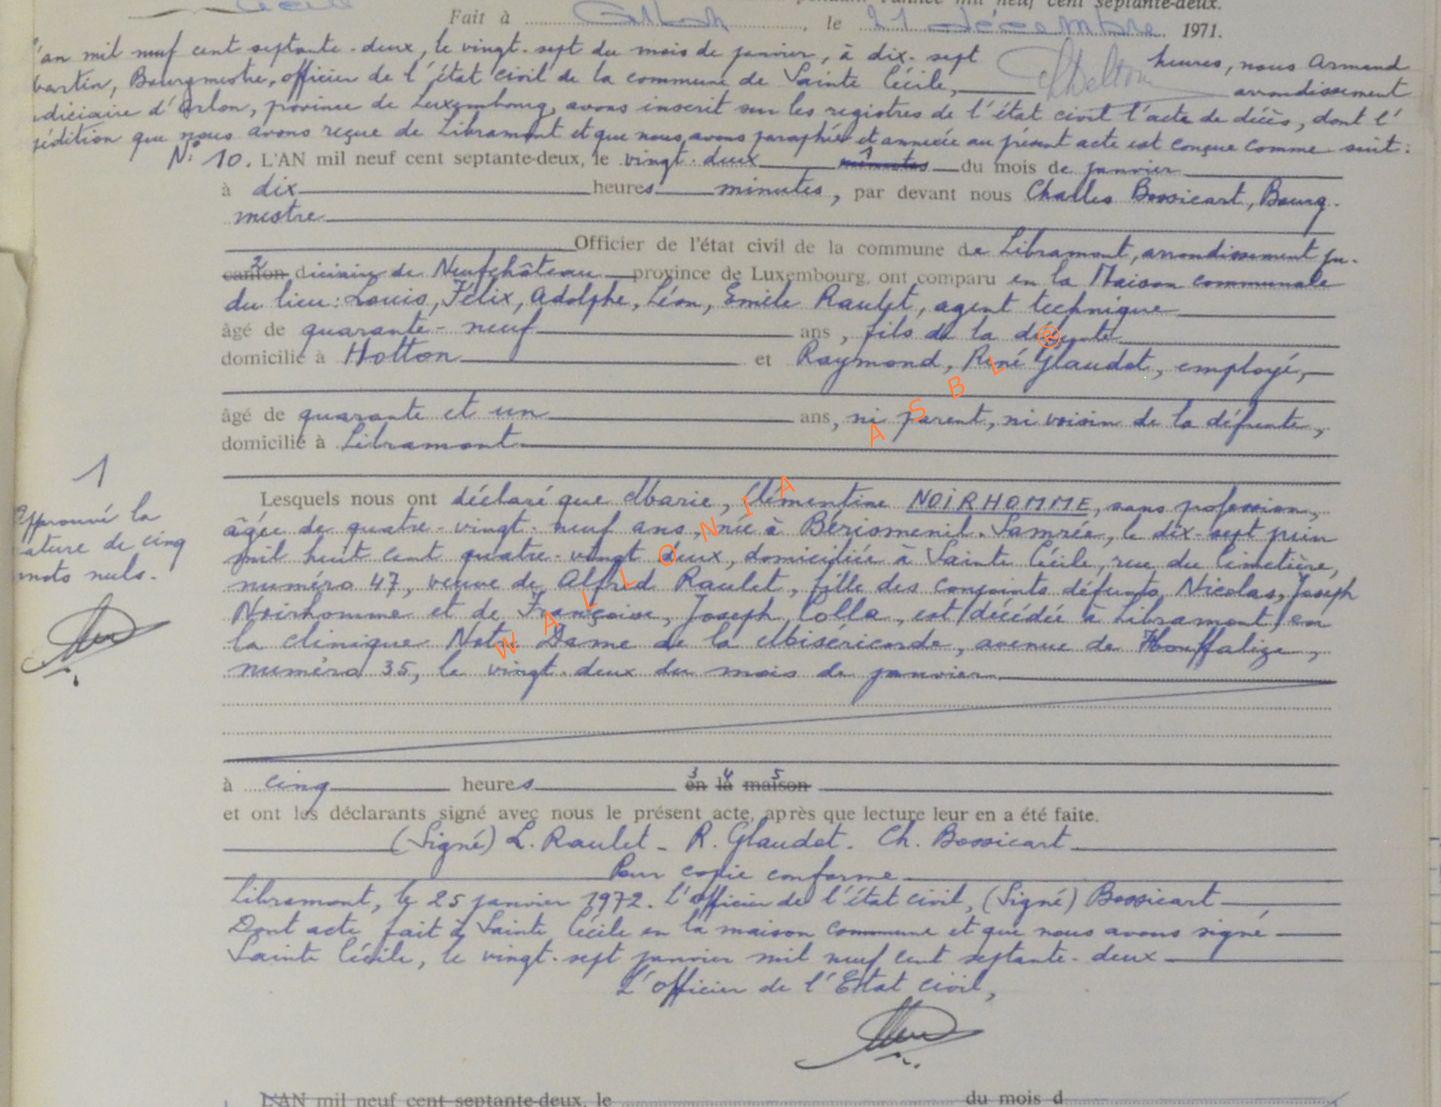 pendant l'année mil neuf cent septante-deux.
Fait à ..., le 21 décembre 1971.
l'an mil neuf cent septante-deux, le vingt-sept du mois de janvier, à dix-sept heures, nous Armand
Bourgmestre, officier de l'état civil de la commune de Sainte Cécile, arrondissement
judiciaire d'Arlon, province de Luxembourg, avons inscrit sur les registres de l'état civil l'acte de décès, dont l'
expédition que nous avons reçue de Libramont et que nous avons paraphée et annexée au présent acte est conçue comme suit :
N° 10. L'AN mil neuf cent septante-deux, le vingt-deux minutes 1 du mois de janvier
à dix heures minutes, par devant nous Charles Bossicart, Bourg-
mestre
Officier de l'état civil de la commune de Libramont, arrondissement ju-
canton 2 diciaire de Neufchâteau province de Luxembourg, ont comparu en la Maison communale
du lieu : Louis, Félix, Adolphe, Léon, Emile Raulet, agent technique
âgé de quarante-neuf ans, fils de la défunte
domicilié à Hotton et Raymond, René Glaudot, employé,
âgé de quarante et un ans, ni parent, ni voisin de la défunte,
domicilié à Libramont
Lesquels nous ont déclaré que Marie, Clémentine NOIRHOMME, sans profession,
âgée de quatre-vingt-neuf ans, née à Bérismenil-Samrée, le dix-sept juin
mil huit cent quatre-vingt deux, domiciliée à Sainte Cécile, rue du Cimetière,
numéro 47, veuve de Alfred Raulet, fille des conjoints défunts, Nicolas, Joseph
Noirhomme et de Françoise, Joseph Colla, est décédée à Libramont, en
la clinique Notre Dame de la Miséricorde, avenue de Houffalize,
numéro 35, le vingt-deux du mois de janvier
à cinq heures en 3 la 4 maison 5
et ont les déclarants signé avec nous le présent acte, après que lecture leur en a été faite.
(Signé) L. Raulet - R. Glaudot. Ch. Bossicart
Pour copie conforme
Libramont, le 25 janvier 1972. L'officier de l'état civil, (Signé) Bossicart
Dont acte fait à Sainte Cécile en la maison commune et que nous avons signé
Sainte Cécile, le vingt-sept janvier mil neuf cent septante-deux
L'officier de l'Etat civil,
L'AN mil neuf cent septante-deux, le du mois d
1
Approuvé la
rature de cinq
mots nuls.
WALLONIA ASBL ®